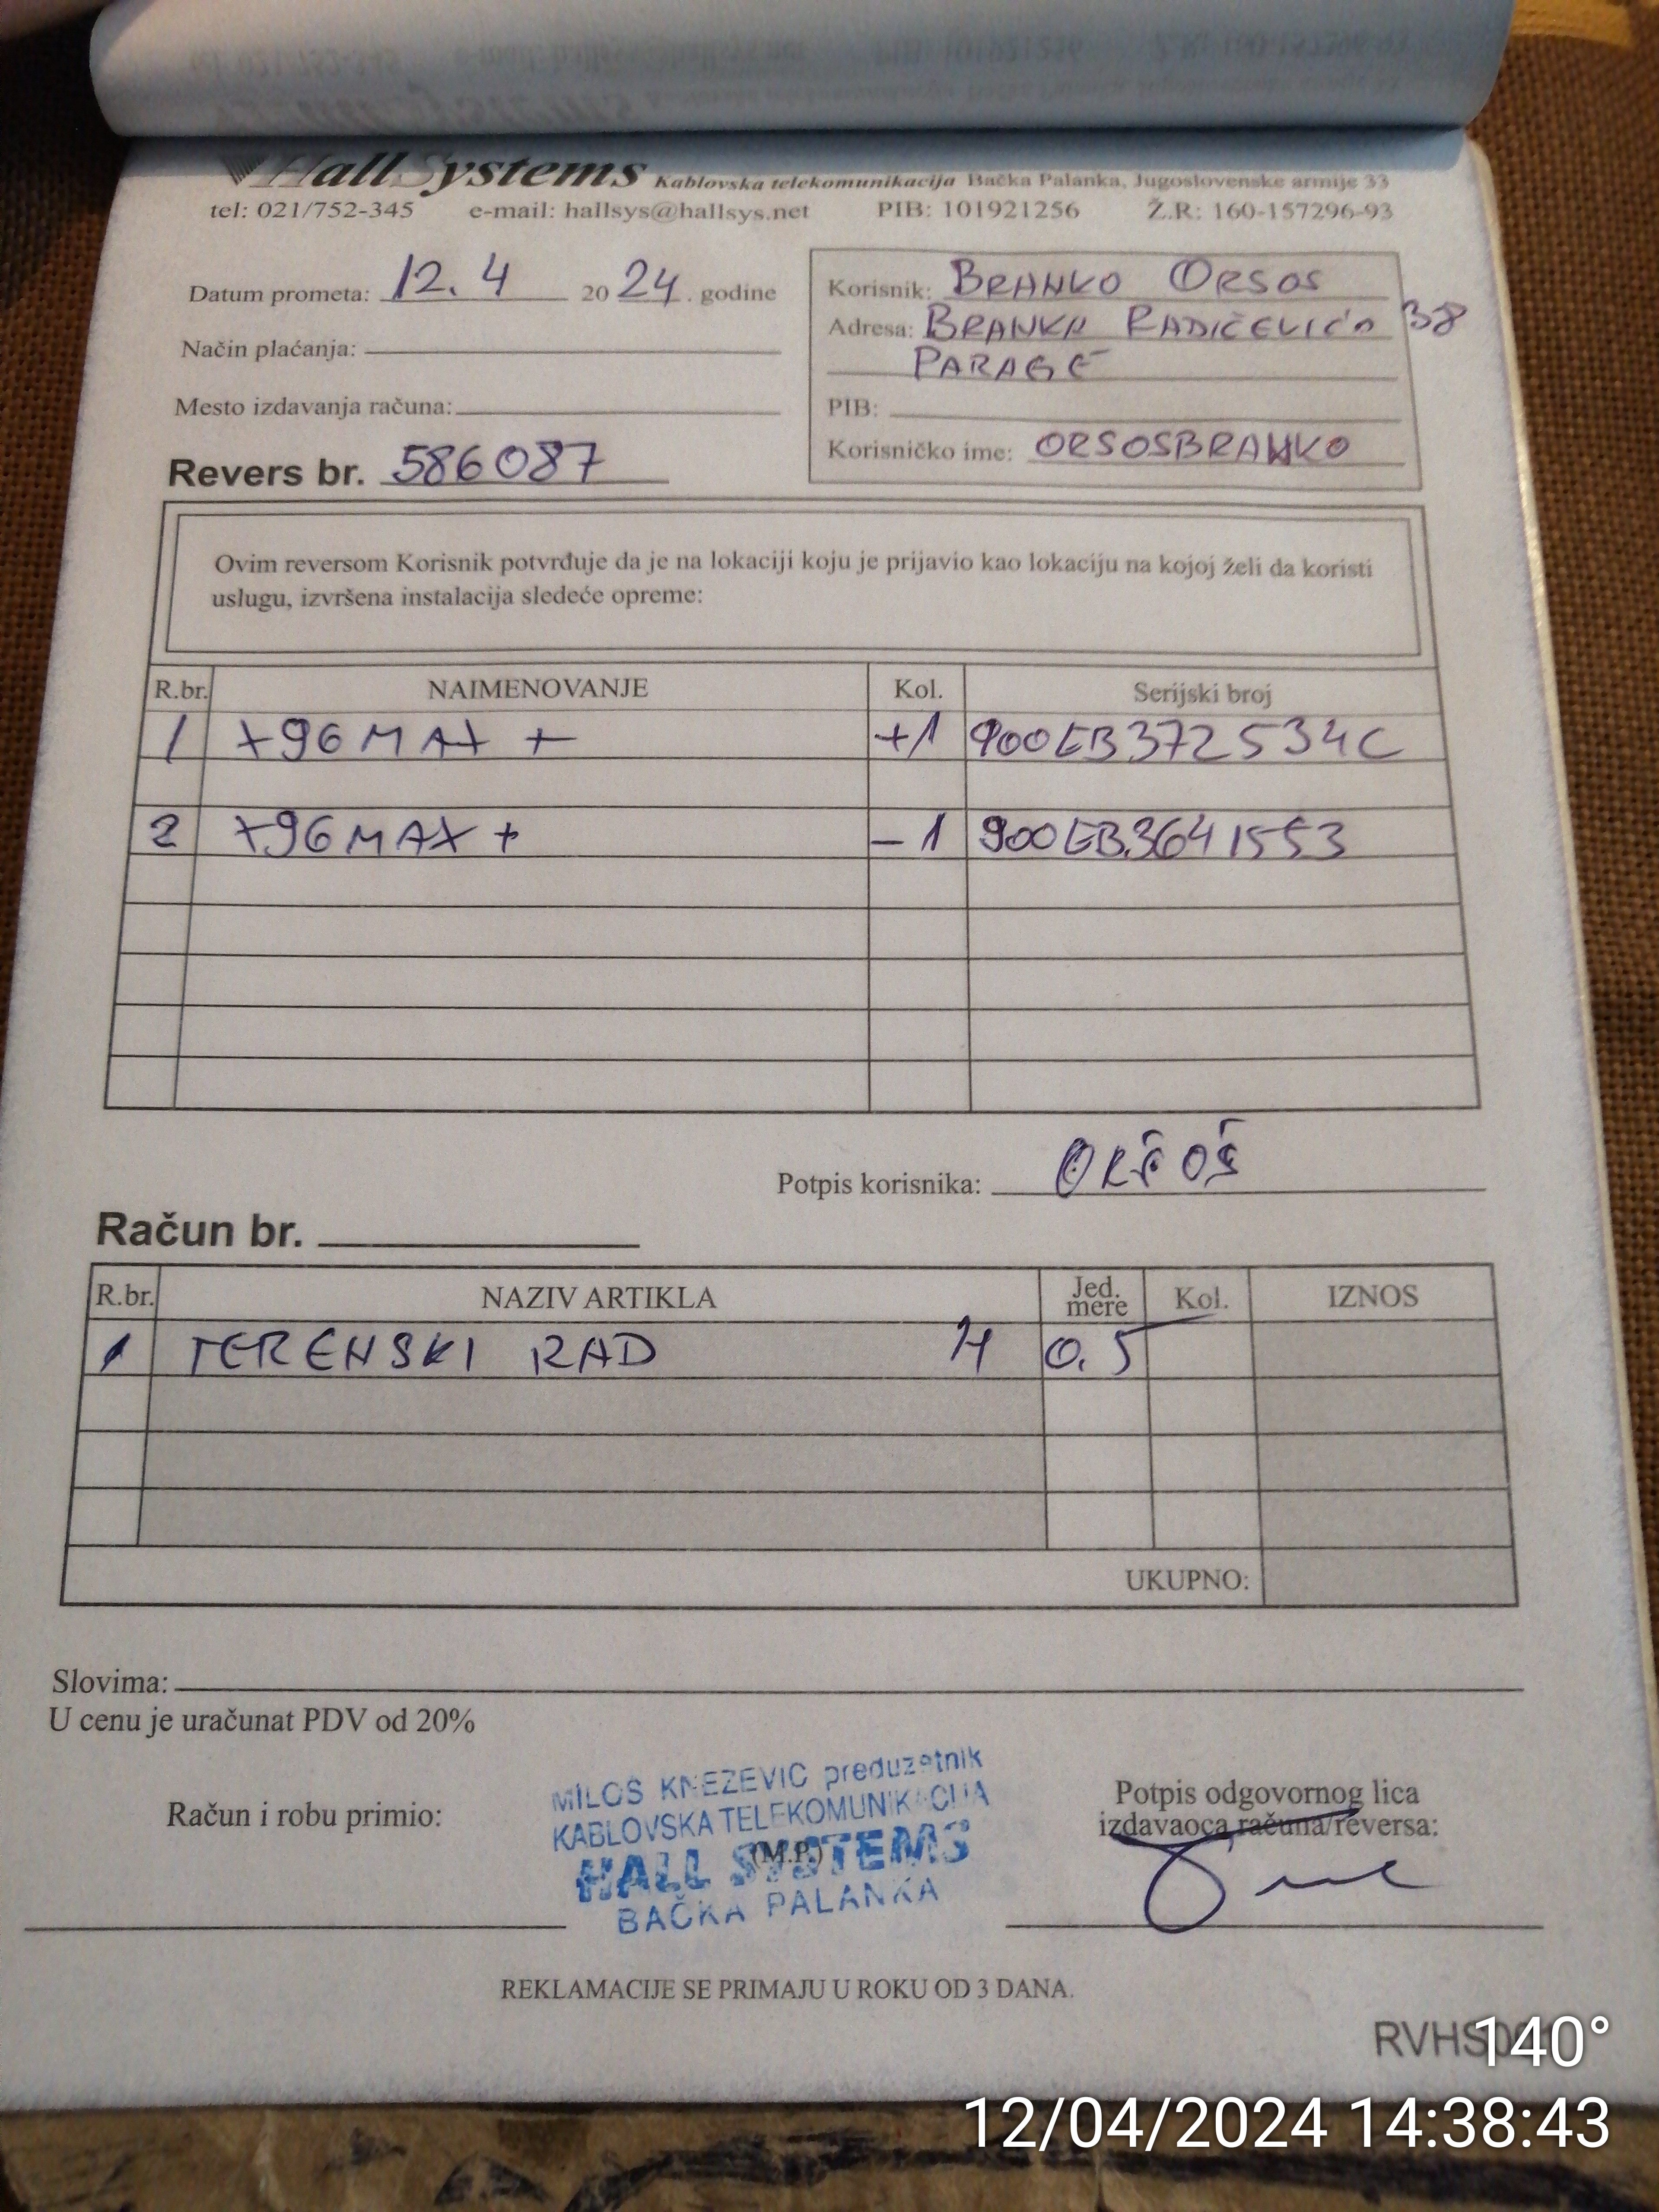 HallSystems Kablovska telekomunikacija Bačka Palanka, Jugoslovenske armije 33
tel: 021/752-345 e-mail: hallsys@hallsys.net PIB: 101921256 Ž.R: 160-157296-93
Datum prometa: 12.4 2024. godine
Način plaćanja:
Mesto izdavanja računa:
Revers br. 586087
Korisnik: BRANKO ORSOS
Adresa: BRANKA RADIČEVIĆA 38
PARAGE
PIB:
Korisničko ime: ORSOSBRANKO
Ovim reversom Korisnik potvrđuje da je na lokaciji koju je prijavio kao lokaciju na kojoj želi da koristi
uslugu, izvršena instalacija sledeće opreme:
R.br. NAIMENOVANJE Kol. Serijski broj
1 X96MAX + +1 900EB372534C
2 X96MAX + -1 900EB3641553
Potpis korisnika: ORŠOŠ
Račun br.
R.br. NAZIV ARTIKLA Jed. mere Kol. IZNOS
1 TERENSKI RAD H 0.5
UKUPNO:
Slovima:
U cenu je uračunat PDV od 20%
Račun i robu primio:
MILOŠ KNEZEVIC preduzetnik
KABLOVSKA TELEKOMUNIKACIJA
HALL SYSTEMS
(M.P.)
BAČKA PALANKA
Potpis odgovornog lica
izdavaoca računa/reversa:
REKLAMACIJE SE PRIMAJU U ROKU OD 3 DANA.
140°
12/04/2024 14:38:43